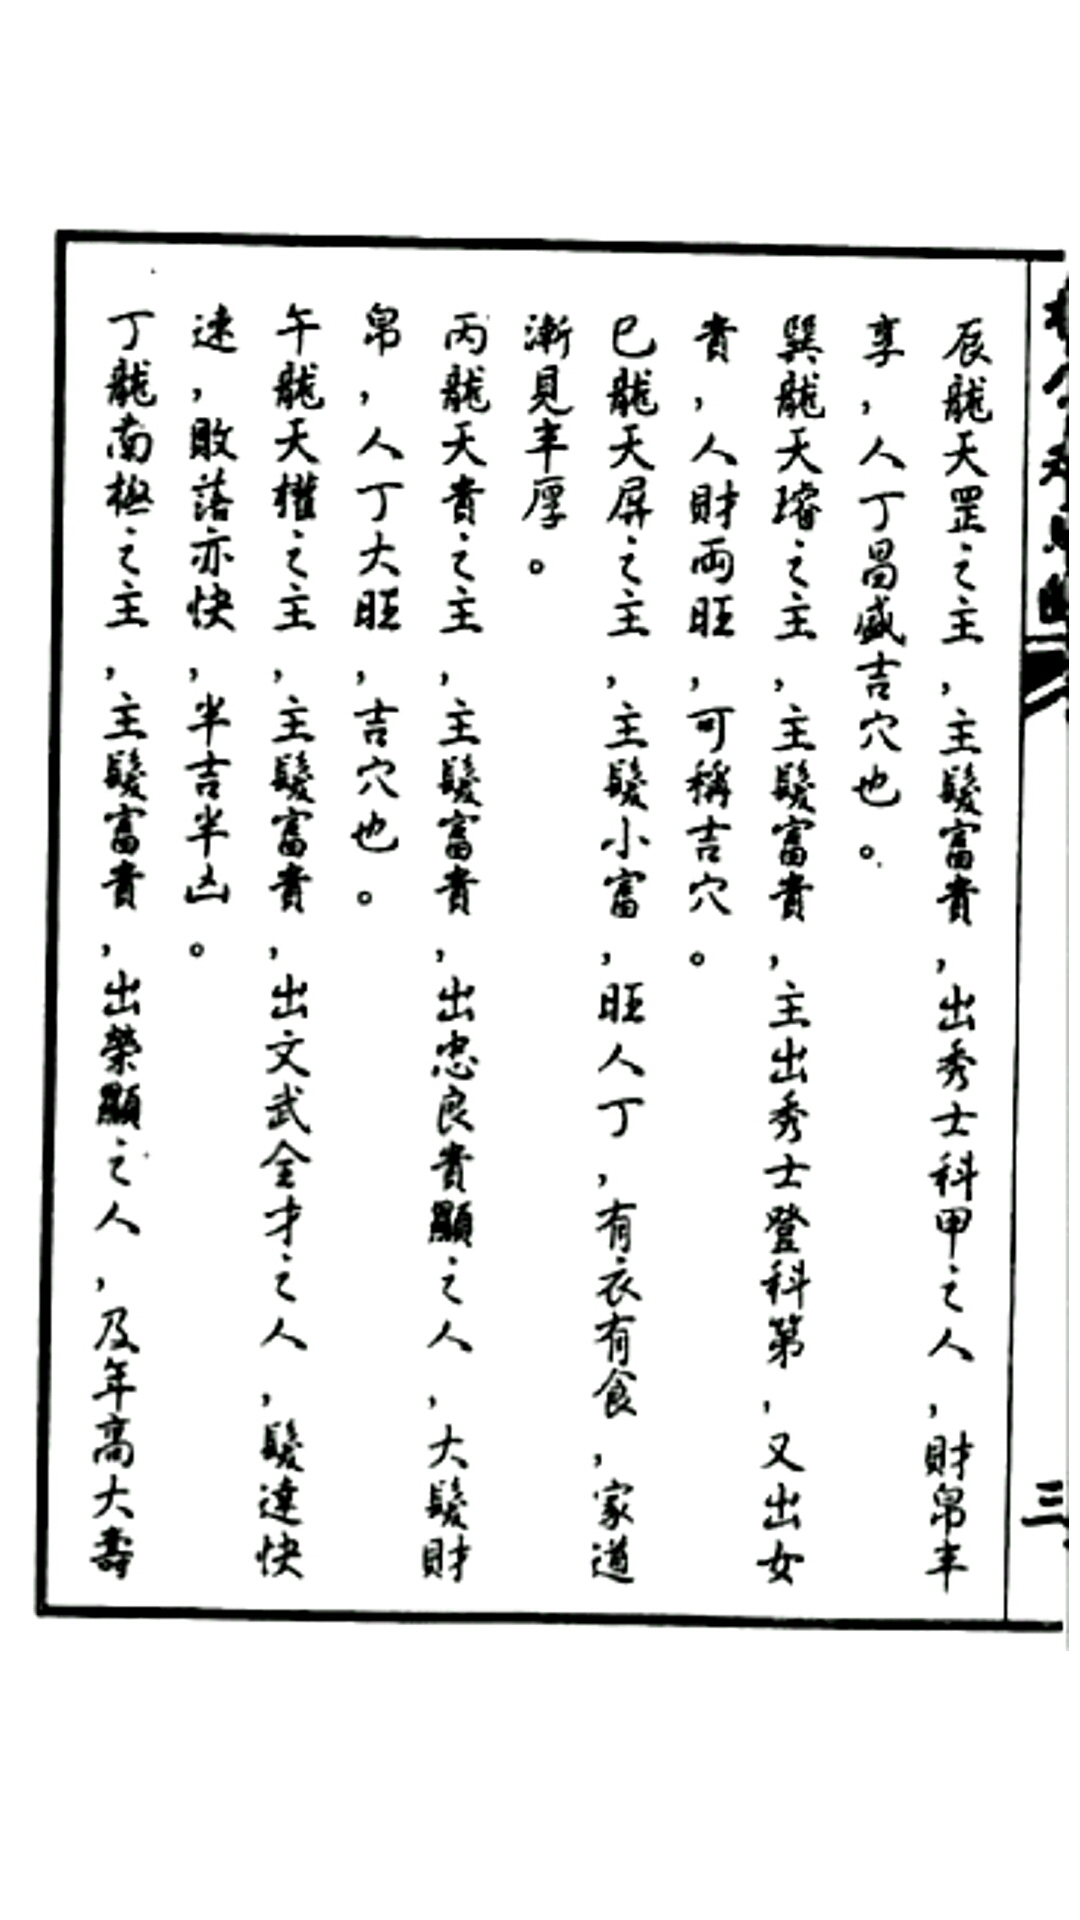 辰龍天罡之主，主髮富貴，出秀士科甲之人，財帛丰
享，人丁昌盛吉穴也。
巽龍天璿之主，主髮富貴，主出秀士登科第，又出女
貴，人財兩旺，可稱吉穴。
巳龍天屏之主，主髮小富，旺人丁，有衣有食，家道
漸見丰厚。
丙龍天貴之主，主髮富貴，出忠良貴顯之人，大髮財
帛，人丁大旺，吉穴也。
午龍天權之主，主髮富貴，出文武全才之人，髮達快
速，敗落亦快，半吉半凶。
丁龍南極之主，主髮富貴，出榮顯之人，及年高大壽
三